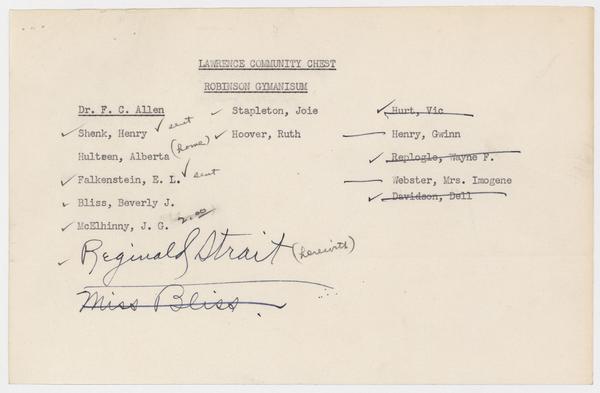 LAWRENCE COMMUNITY CHEST
ROBINSON GYMANISUM
Dr. F. C. Allen
Shenk, Henry ✓ sent
Hulteen, Alberta (home)
Falkenstein, E. L. ✓ sent
Bliss, Beverly J.
McElhinny, J. G. 2.00
Reginald Strait (herewith)
Miss Bliss
Stapleton, Joie
Hoover, Ruth
Hurt, Vic
Henry, Gwinn
Replogle, Wayne F.
Webster, Mrs. Imogene
Davidson, Dell